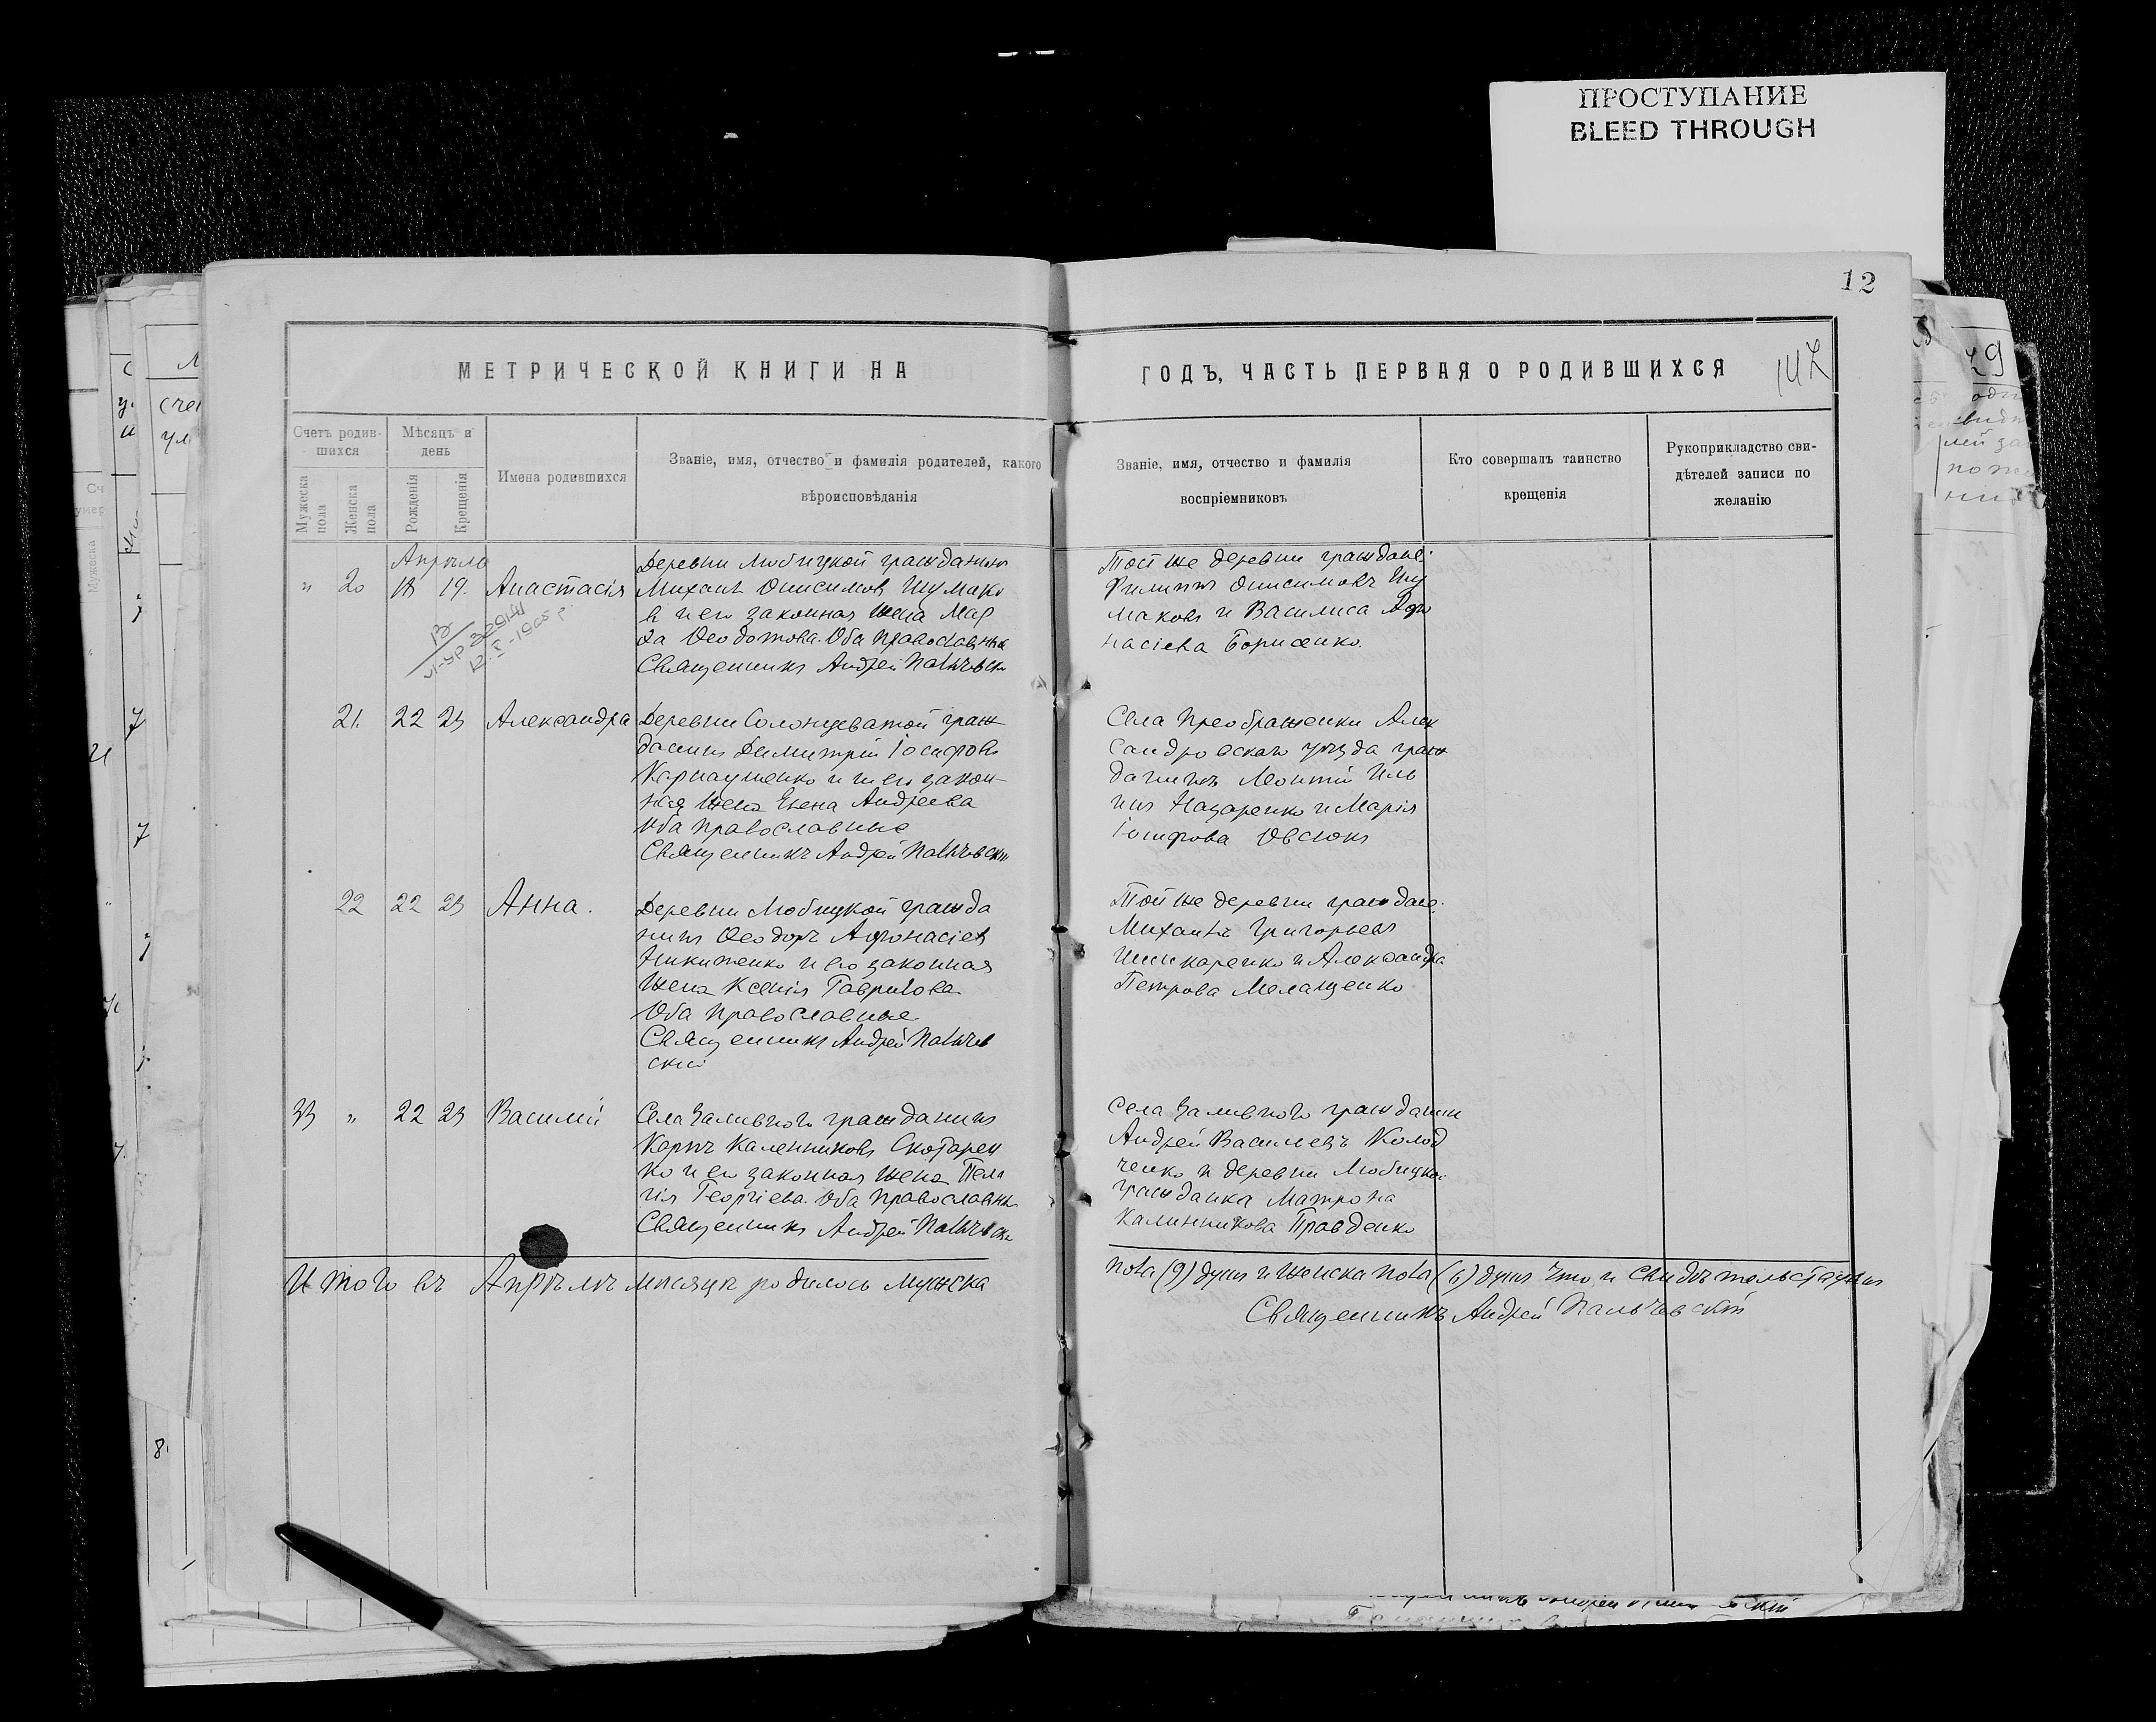 ПРОСТУПАНИЕ
BLEED THROUGH
12
МЕТРИЧЕСКОЙ КНИГИ НА
ГОДЪ, ЧАСТЬ ПЕРВАЯ О РОДИВШИХСЯ
Счетъ родив-
шихся
Мужеска пола
Женска пола
Мѣсяцъ и
день
Рожденія
Крещенія
Имена родившихся
Званіе, имя, отчество и фамилія родителей, какого
вѣроисповѣданія
Званіе, имя, отчество и фамилія
воспріемниковъ
Кто совершалъ таинство
крещенія
Рукоприкладство сви-
дѣтелей записи по
желанію
Апрѣля
" 20 18 19. Анастасія
Деревни Любицкой гражданинъ
Михаилъ Онисимов Шумако
в и его законная жена Мар
ѳа Ѳеодотова. Оба православные
Священникъ Андрей Пальчевскій
Той же деревни граждане:
Филиппъ Онисимовъ Шу
маковъ и Василиса Афо
насіева Борисенко.
21. 22 23 Александра
Деревни Солонцеватой граж
данинъ Димитрій Іосифовъ
Карнаушенко и его закон-
ная жена Елена Андреева
Оба православные
Священникъ Андрей Пальчевскій
Села Преображенки Алек
сандровскаго уѣзда граж
данинъ Леонтій Иль
инъ Назаренко и Марія
Іосифова Овсюкъ
22 22 23 Анна.
Деревни Любицкой гражда
нинъ Ѳеодоръ Афонасіевъ
Никитенко и его законная
жена Ксенія Гаврилова.
Оба православные
Священникъ Андрей Пальчев
скій
Той же деревни граждане:
Михаилъ Григорьевъ
Шинкаренко и Александра
Петрова Мелащенко
" 22 23 Василій
Села Заливного гражданинъ
Карпъ Каленниковъ Скотарен
ко и его законная жена Пела
гія Георгіева. Оба православные
Священникъ Андрей Пальчевскій
Села Заливного гражданин
Андрей Василевъ Колод
ченко и деревни Любицкой
гражданка Матрона
Калинникова Правденко
Итого въ Апрѣлѣ мѣсяцѣ родилось мужска
пола (9) душъ и женска пола (6) душъ что и свидѣтельствуютъ
Священникъ Андрей Пальчевскій